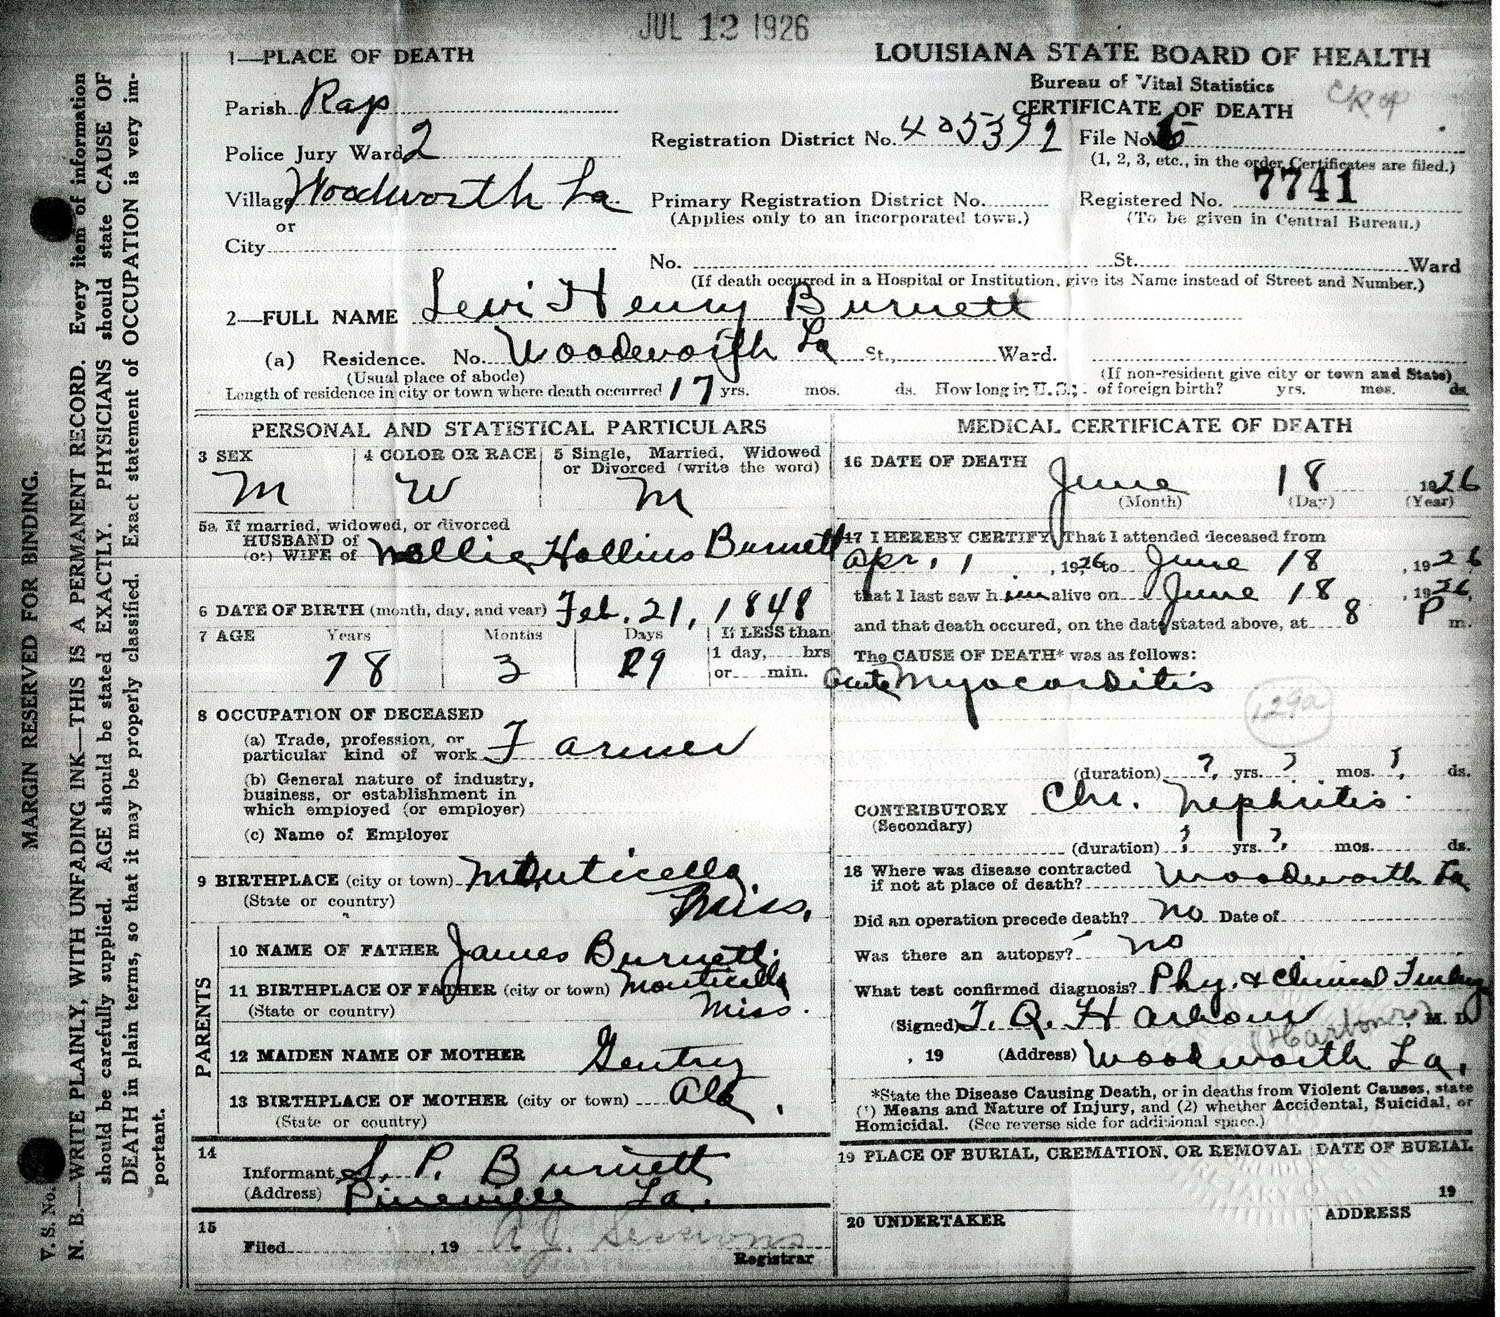 JUL 12 1926
1—PLACE OF DEATH
Parish Rap
Police Jury Ward 2
Village Woodworth La
or
City
LOUISIANA STATE BOARD OF HEALTH
Bureau of Vital Statistics
CERTIFICATE OF DEATH
Registration District No. File No.
(1, 2, 3, etc., in the order Certificates are filed.)
Primary Registration District No. Registered No. 7741
(Applies only to an incorporated town.) (To be given in Central Bureau.)
No. St. Ward
(If death occurred in a Hospital or Institution, give its Name instead of Street and Number.)
2—FULL NAME Levi Henry Burnett
(a) Residence. No. Woodworth La St., Ward.
(Usual place of abode) (If non-resident give city or town and State)
Length of residence in city or town where death occurred 17 yrs. mos. ds. How long in U. S., of foreign birth? yrs. mos. ds.
PERSONAL AND STATISTICAL PARTICULARS
3 SEX
M
4 COLOR OR RACE
W
5 Single, Married, Widowed
or Divorced (write the word)
M
5a If married, widowed, or divorced
HUSBAND of
(or) WIFE of Mollie Hollins Burnett
6 DATE OF BIRTH (month, day, and year) Feb. 21, 1848
7 AGE Years Months Days If LESS than
1 day, hrs
or min.
78 3 29
8 OCCUPATION OF DECEASED
(a) Trade, profession, or
particular kind of work Farmer
(b) General nature of industry,
business, or establishment in
which employed (or employer)
(c) Name of Employer
9 BIRTHPLACE (city or town) Monticello
(State or country) Miss.
PARENTS
10 NAME OF FATHER James Burnett.
11 BIRTHPLACE OF FATHER (city or town) Monticello
(State or country) Miss.
12 MAIDEN NAME OF MOTHER Gentry
13 BIRTHPLACE OF MOTHER (city or town) Ala.
(State or country)
14
Informant S. P. Burnett
(Address) Pineville La.
15
Filed , 19 A J. Sessions
Registrar
MEDICAL CERTIFICATE OF DEATH
16 DATE OF DEATH June 18 1926
(Month) (Day) (Year)
17 I HEREBY CERTIFY, That I attended deceased from
Apr. 1, 1926, to June 18, 1926
that I last saw him alive on June 18, 1926,
and that death occured, on the date stated above, at 8 P m.
The CAUSE OF DEATH* was as follows:
acute Myocarditis
129a
(duration) ? yrs. ? mos. ? ds.
CONTRIBUTORY Chr. Nephritis.
(Secondary)
(duration) ? yrs. ? mos. ds.
18 Where was disease contracted
if not at place of death? Woodworth La
Did an operation precede death? no Date of
Was there an autopsy? no
What test confirmed diagnosis? Phy. & Clinical Findings
(Signed) T. Q. Harbour, M. D.
(Harbour)
, 19 (Address) Woodworth La.
*State the Disease Causing Death, or in deaths from Violent Causes, state
(1) Means and Nature of Injury, and (2) whether Accidental, Suicidal, or
Homicidal. (See reverse side for additional space.)
19 PLACE OF BURIAL, CREMATION, OR REMOVAL DATE OF BURIAL
19
20 UNDERTAKER ADDRESS
MARGIN RESERVED FOR BINDING.
V. S. No.
N. B.—WRITE PLAINLY, WITH UNFADING INK—THIS IS A PERMANENT RECORD. Every item of information
should be carefully supplied. AGE should be stated EXACTLY. PHYSICIANS should state CAUSE OF
DEATH in plain terms, so that it may be properly classified. Exact statement of OCCUPATION is very im-
portant.